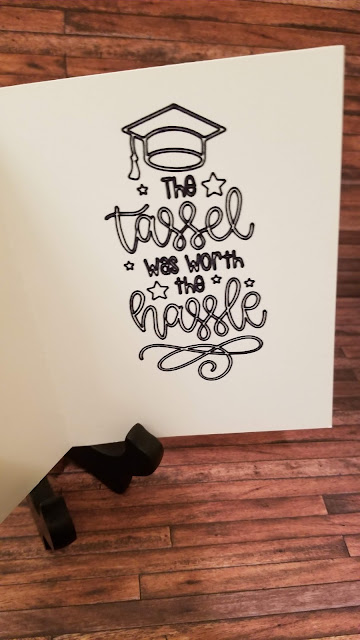 The
tassel
was worth
the
hassle